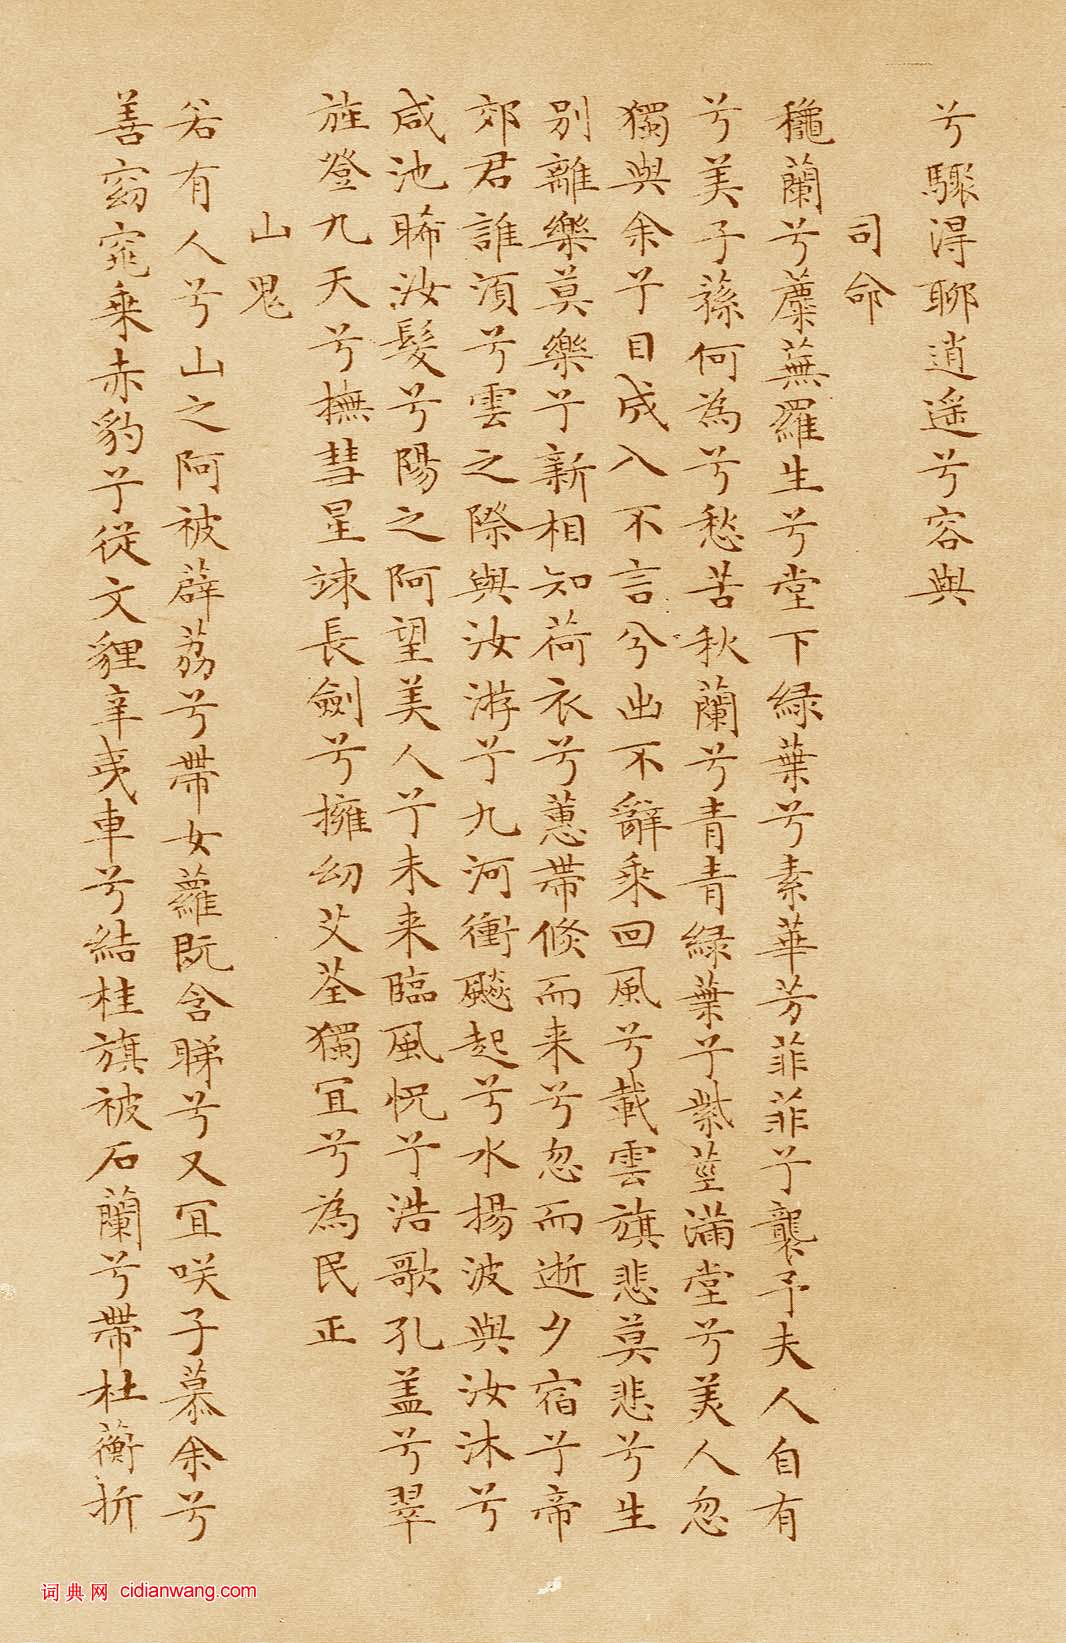 兮驟得聊逍遥兮容與
司命
龝蘭兮蘪蕪羅生兮堂下緑葉兮素華芳菲菲兮襲予夫人自有
兮美子蓀何為兮愁苦秋蘭兮青青緑葉兮紫莖滿堂兮美人忽
獨與余兮目成入不言兮出不辭乘回風兮載雲旗悲莫悲兮生
别離樂莫樂兮新相知荷衣兮蕙帶倏而来兮忽而逝夕宿兮帝
郊君誰湏兮雲之際與汝游兮九河衝飈起兮水揚波與汝沐兮
咸池晞汝髮兮陽之阿望美人兮未来臨風怳兮浩歌孔盖兮翠
旌登九天兮撫彗星竦長劍兮擁幼艾荃獨冝兮為民正
山鬼
若有人兮山之阿被薜荔兮帶女蘿既含睇兮又冝咲子慕余兮
善窈窕乘赤豹兮從文貍辛夷車兮結桂旗被石蘭兮帶杜蘅折
词典网 cidianwang.com